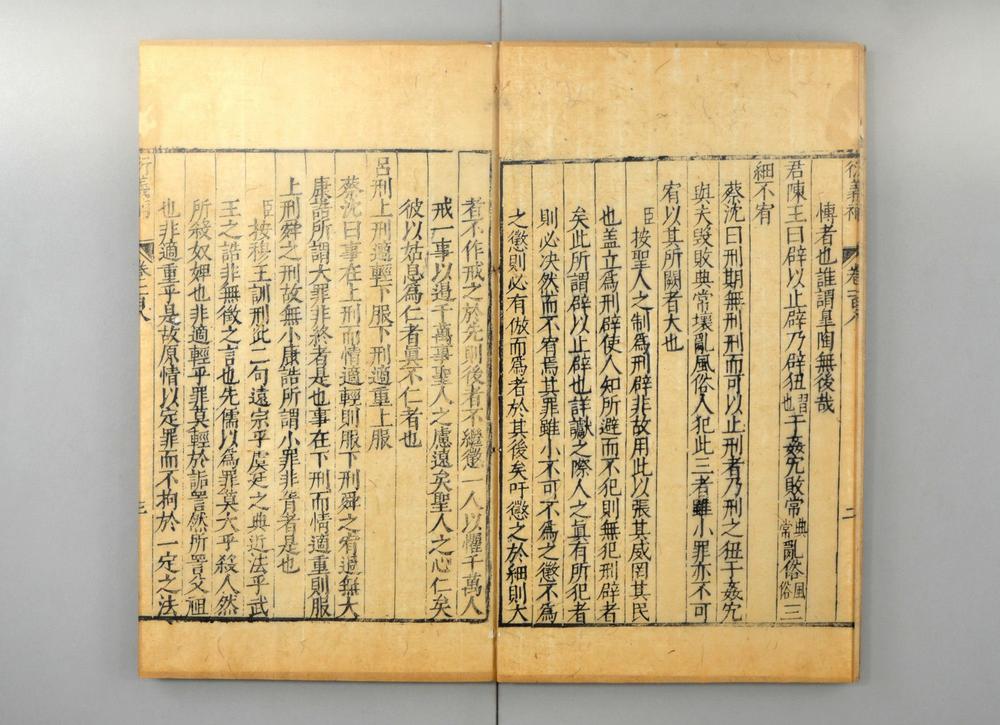 衍義補 卷一百八 二
愽者也誰謂臯陶無後哉
君陳王曰辟以止辟乃辟狃習也于姦宄敗常典常亂俗風俗三
細不宥
蔡沈曰刑期無刑刑而可以止刑者乃刑之狃于姦宄
與夫毀敗典常壞亂風俗人犯此三者雖小罪亦不可
宥以其所關者大也
臣按聖人之制爲刑辟非故用此以張其威罔其民
也盖立爲刑辟使人知所避而不犯則無犯刑辟者
矣此所謂辟以止辟也詳讞之際人之眞有所犯者
則必决然而不宥焉其罪雖小不可不爲之懲不爲
之懲則必有倣而爲者於其後矣吁懲之於細則大
者不作戒之於先則後者不繼懲一人以懼千萬人
戒一事以遏千萬事聖人之慮遠矣聖人之心仁矣
彼以姑息爲仁者眞不仁者也
呂刑上刑適輕下服下刑適重上服
蔡沈曰事在上刑而情適輕則服下刑舜之宥過無大
康誥所謂大罪非終者是也事在下刑而情適重則服
上刑舜之刑故無小康誥所謂小罪非眚者是也
臣按穆王訓刑此二句遠宗乎虞廷之典近法乎武
王之誥非無徵之言也先儒以爲罪莫大乎殺人然
所殺奴婢也非適輕乎罪莫輕於詬詈然所詈父祖
也非適重乎是故原情以定罪而不拘於一定之法
衍義補 卷一百八 三